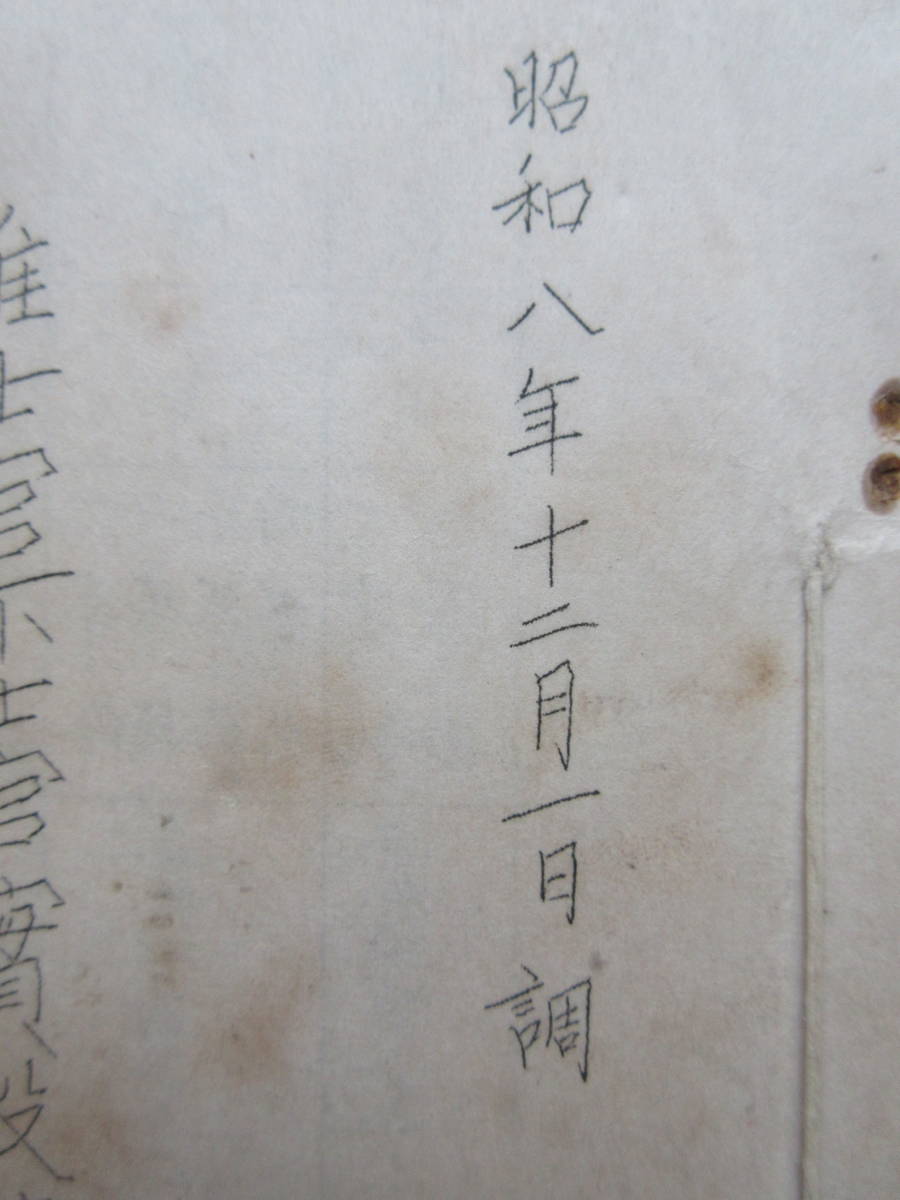 昭和八年十二月一日調
准士官下士官實役